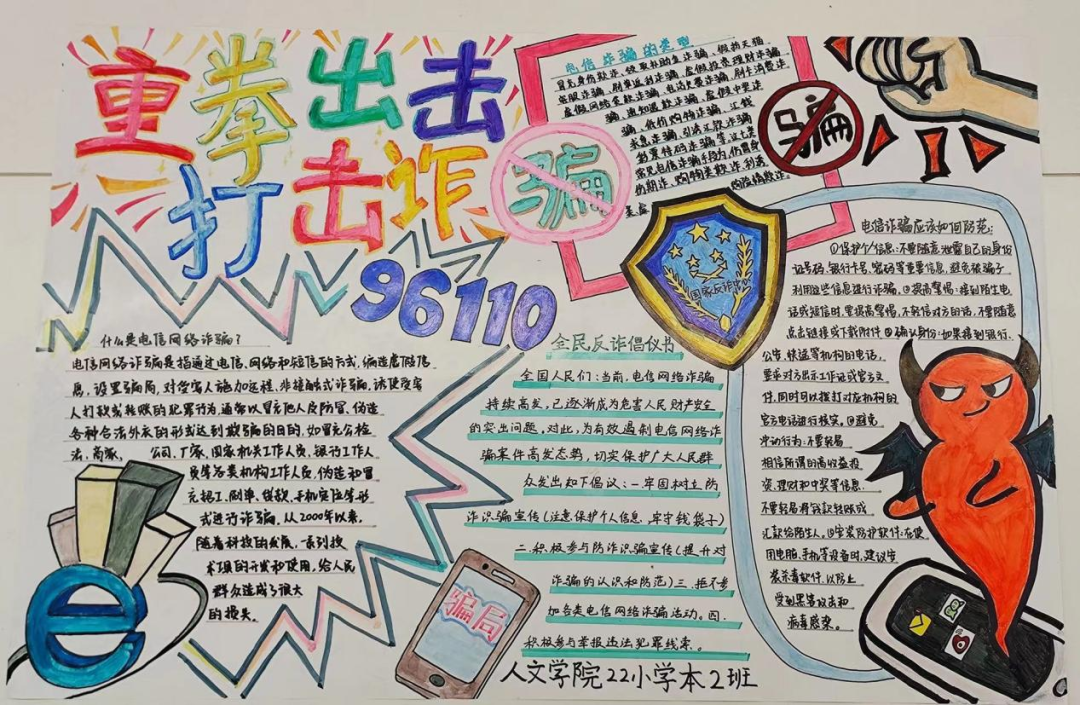 重拳出击
打击诈
骗
96110
电信诈骗的类型
冒充身份欺诈、
客服诈骗、刷单返利诈骗、虚假投资理财诈骗
虚假网络贷款诈骗、电话欠费诈骗、刷卡消费诈
骗、低价购物诈骗、汇钱
骗
国家反诈中心
什么是电信网络诈骗?
电信网络诈骗是指通过电信、网络和短信的方式,编造虚假信
息,设置骗局,对受害人施加远程、非接触式诈骗,诱使受害
人打款或转账的犯罪行为,通常以冒充他人及仿冒、伪造
各种合法外衣的形式达到欺骗的目的,如冒充公检
法、商家、 公司、厂家、国家机关工作人员、银行工作人
员等各类机构工作人员,伪造和冒
充招工、刷单、贷款、手机定位等形
式进行诈骗。从2000年以来,
随着科技的发展,一系列技
术项的开发和使用,给人民
群众造成了很大
的损失。
全民反诈倡仪书
全国人民们:当前,电信网络诈骗
持续高发,已逐渐成为危害人民财产安全
的突出问题。对此,为有效遏制电信网络诈
骗案件高发态势,切实保护广大人民群
众发出如下倡议:一牢固树立防
诈识骗宣传(注意保护个人信息,牢守钱袋子)
二.积极参与防诈识骗宣传(提升对
诈骗的认识和防范)三.拒不参
加各类电信网络诈骗活动。四.
积极参与举报违法犯罪线索。
骗局
人文学院22小学本2班
电信诈骗应该如何防范:
①保护个人信息:不要随意泄露自己的身份
证号码、银行卡号、密码等重要信息,避免被骗子
利用这些信息进行诈骗。②提高警惕:接到陌生电
话或短信时,要提高警惕,不轻信对方的话,不要随意
点击链接或下载附件③确认身份:如果接到银行、
公安、快递等机构的电话,
要求对方出示工作证或官方文
件,同时可以拨打对应机构的
官方电话进行核实。④避免
冲动行为:不要轻易
相信所谓的高收益投
资、理财和中奖等信息,
不要轻易将钱款转账或
汇款给陌生人。⑤安装防护软件:在使
用电脑、手机等设备时,建议安
装杀毒软件,以防止
受到黑客攻击和
病毒感染。